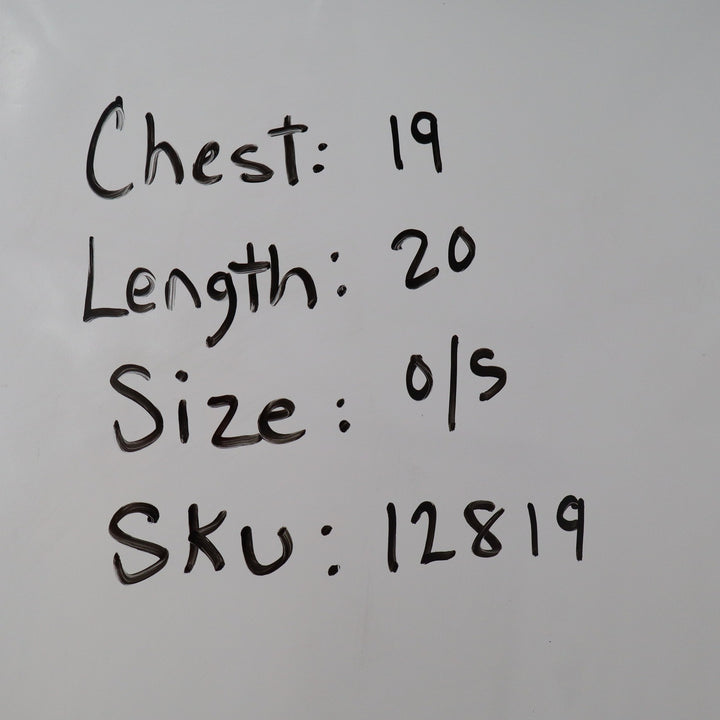 Chest: 19
Length: 20
Size: O/S
SKU: 12819